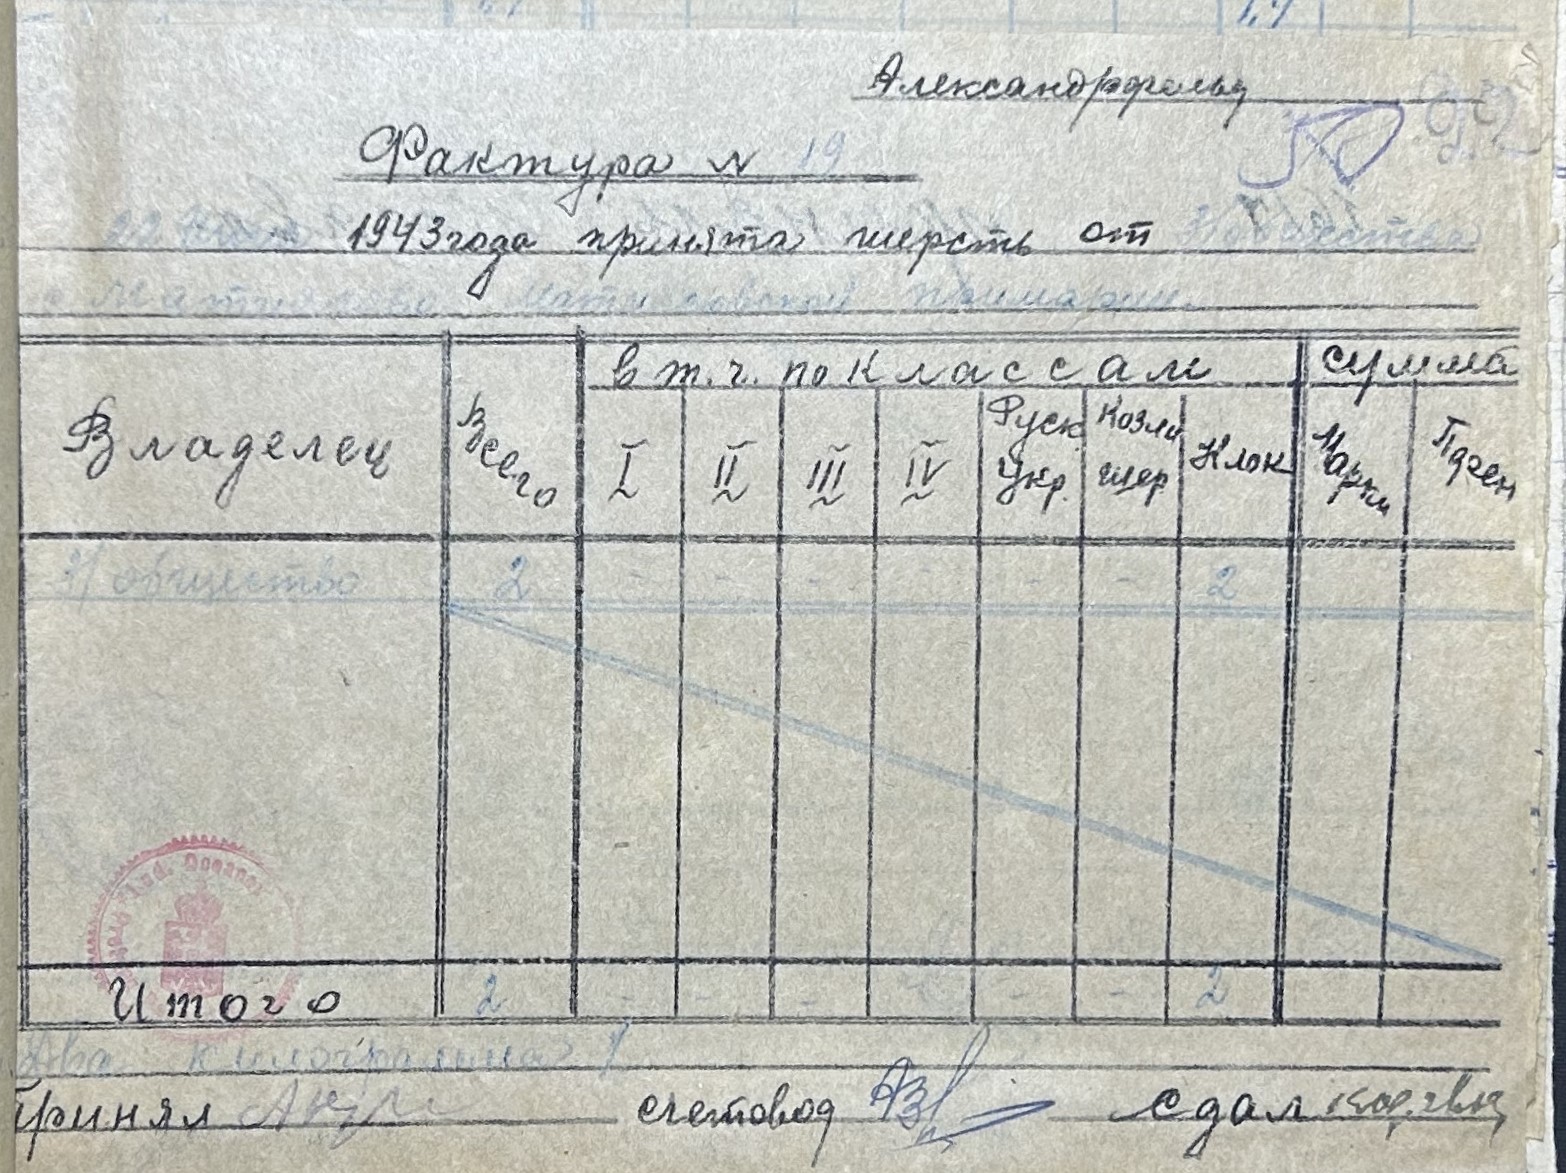 1,4
Александрфельд
Фактура № 19
1943 года принята шерсть от З/общества
примарии.
Владелец Всего в т.ч. по классам сумма
I II III IV Руск. Укр. Козли шер Клок Марки Пфен
З/общество 2 - - - - - - 2
Итого 2 - - - - - 2
Два килограмма
Принял счетовод сдал